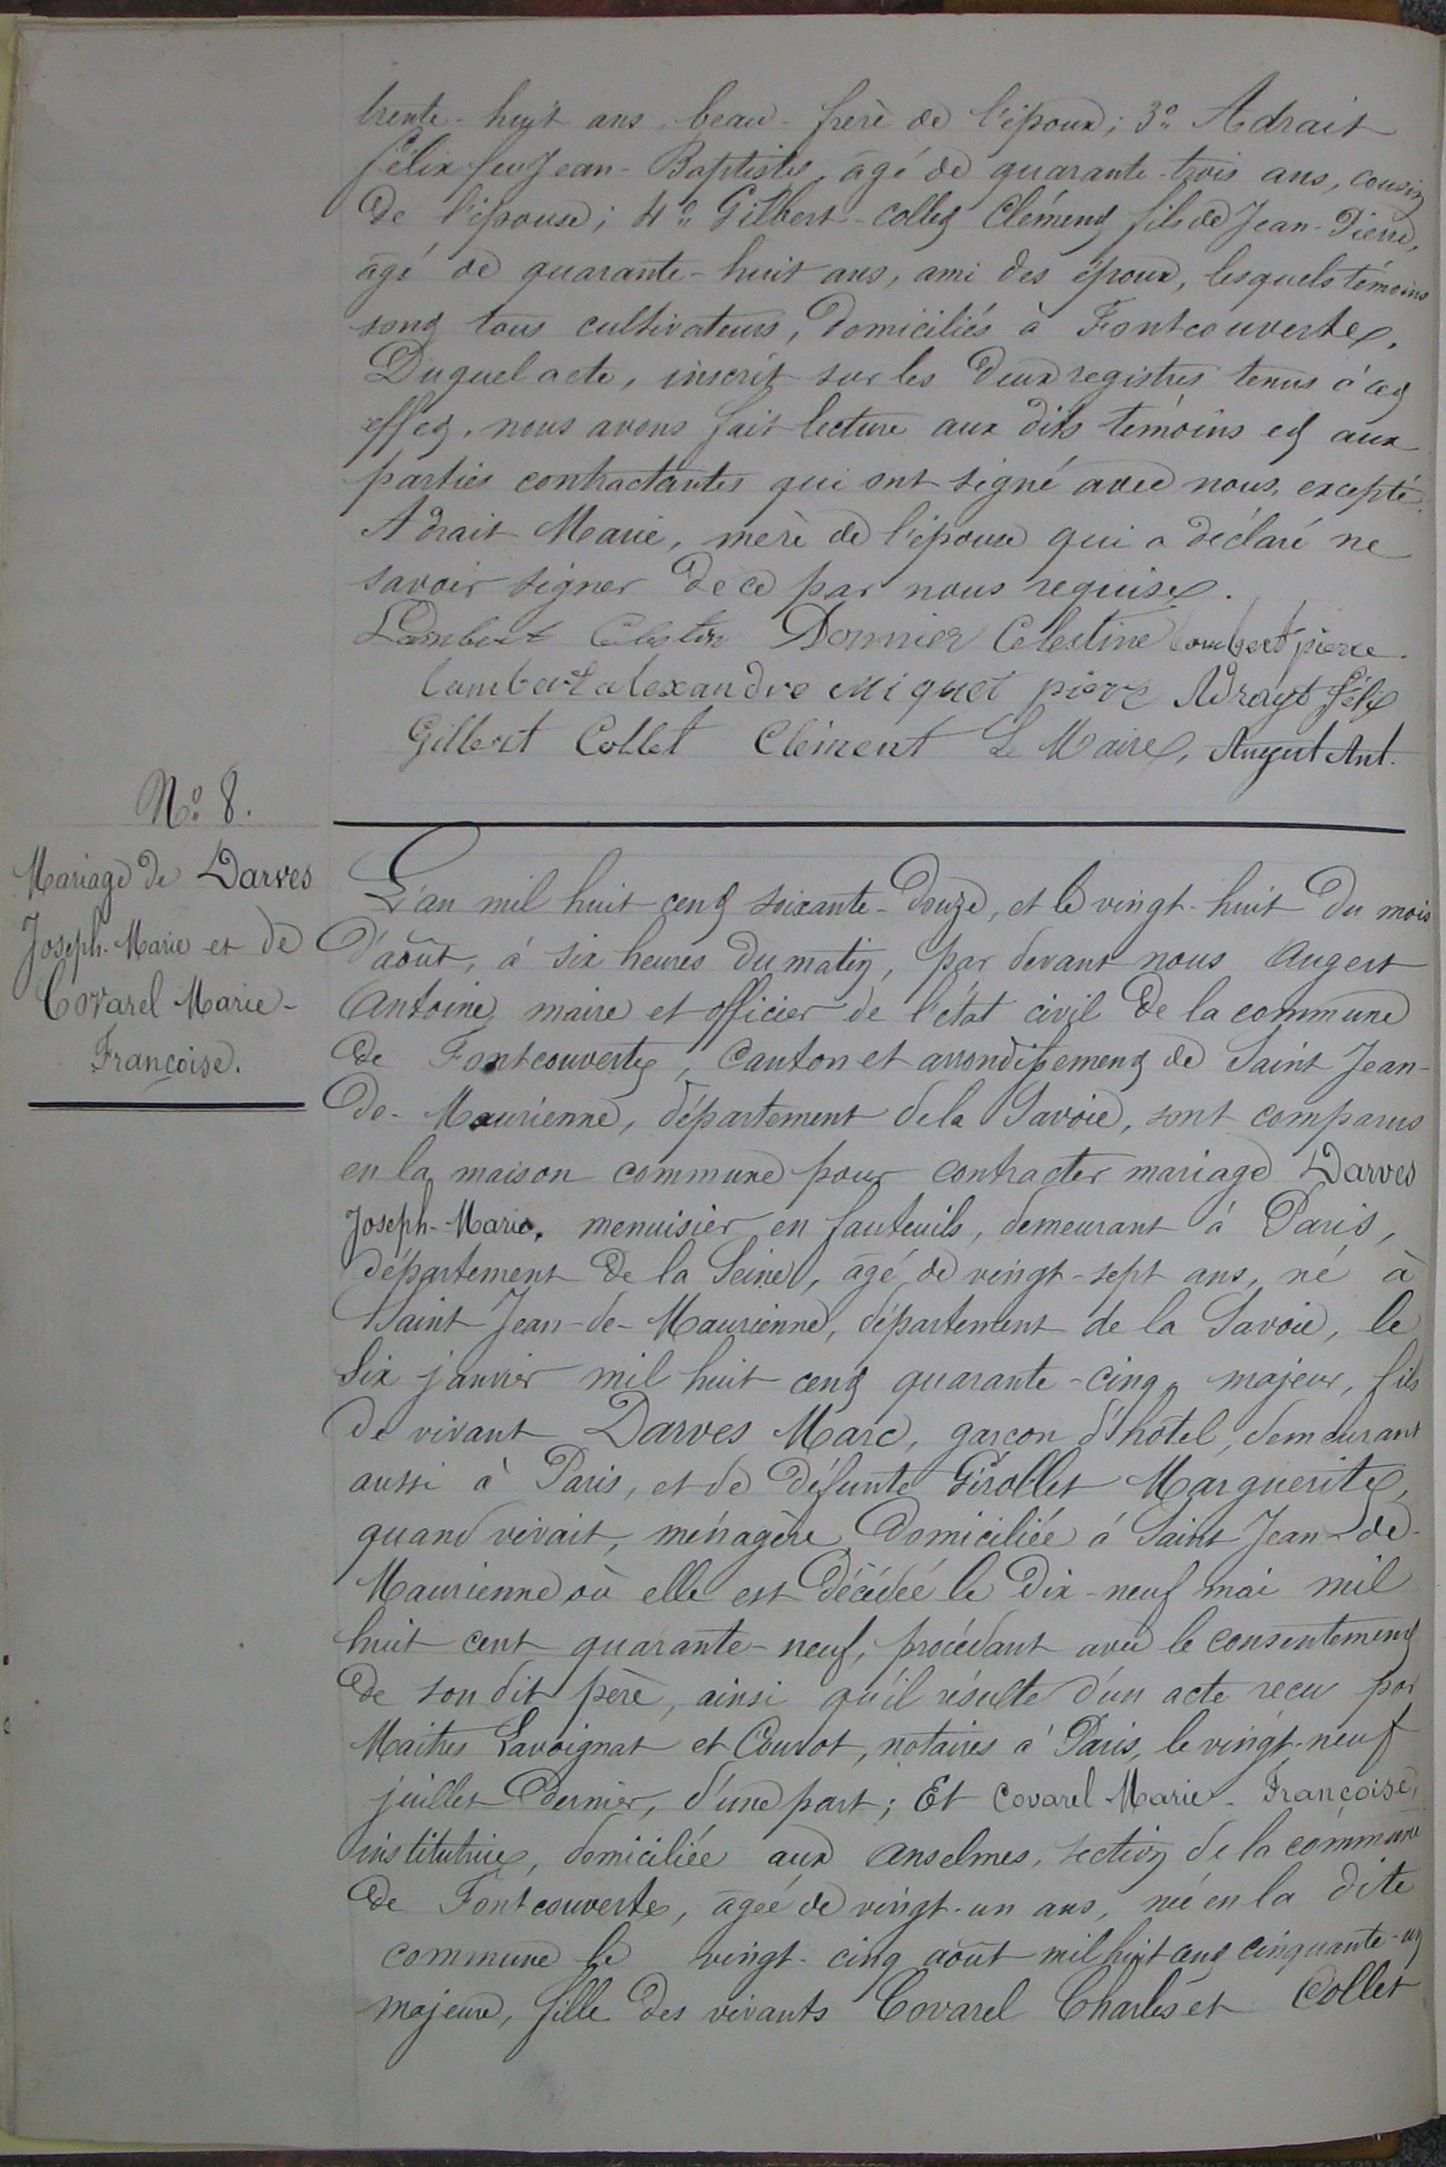 trente-huit ans, beau-frère de l'époux; 3° Adrait
Félix feu Jean-Baptiste, âgé de quarante-trois ans, cousin
de l'épouse; 4° Gilbert-Collet Clément fils de Jean-Pierre,
âgé de quarante-huit ans, ami des époux, lesquels témoins
sont tous cultivateurs, domiciliés à Fontcouverte.
Duquel acte, inscrit sur les deux registres tenus à cet
effet, nous avons fait lecture aux dits témoins et aux
parties contractantes qui ont signé avec nous, excepté
Adrait Marie, mère de l'épouse qui a déclaré ne
savoir signer de ce par nous requise.
Lambert Célestin Donnier Celestine Lambert pierre.
Lambert alexandre Miquet pierre Adrayt Félix
Gilbert Collet Clément Le Maire, Augert Ant.
N° 8.
Mariage de Darves
Joseph-Marie et de
Covarel Marie-
Françoise.
L'an mil huit cent soixante-douze, et le vingt-huit du mois
d'août, à six heures du matin, par devant nous Augert
Antoine, maire et officier de l'état civil de la commune
de Fontcouverte, canton et arrondissement de Saint Jean-
de-Maurienne, département de la Savoie, sont comparus
en la maison commune pour contracter mariage Darves
Joseph-Marie, menuisier en fauteuils, demeurant à Paris,
département de la Seine, âgé de vingt-sept ans, né à
Saint Jean-de-Maurienne, département de la Savoie, le
six janvier mil huit cent quarante-cinq, majeur, fils
de vivant Darves Marc, garçon d'hôtel, demeurant
aussi à Paris, et de défunte Gérollet Marguerite,
quand vivait, ménagère, domiciliée à Saint Jean-de-
Maurienne où elle est décédée le dix-neuf mai mil
huit cent quarante-neuf, procédant avec le consentement
de son dit père, ainsi qu'il résulte d'un acte recu par
Maitres Lavoignat et Courot, notaires à Paris, le vingt-neuf
juillet dernier, d'une part; Et Covarel Marie-Françoise,
institutrice, domiciliée aux Anselmes, section de la commune
de Fontcouverte, âgée de vingt-un ans, née en la dite
commune le vingt-cinq août mil huit cent cinquante-un
majeure, fille des vivants Covarel Charles et Collet